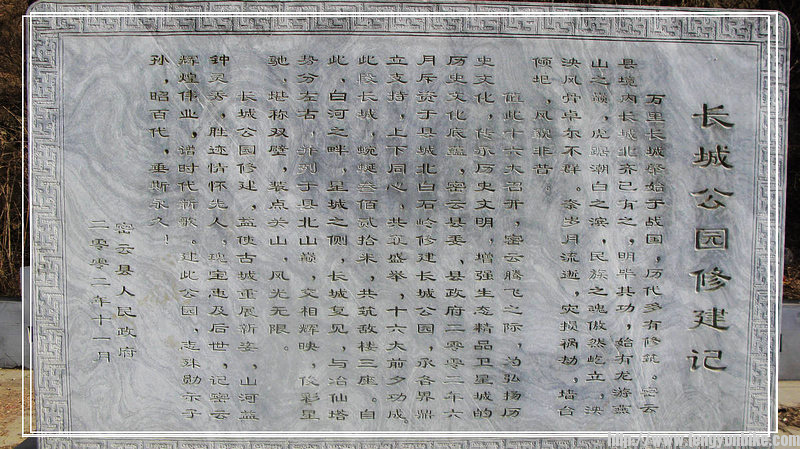 长城公园修建记
万里长城肇始于战国，历代多有修筑。密云
县境内长城北齐已有之，明毕其功，始有龙游燕
山之巅，虎踞潮白之滨，民族之魂傲然屹立，泱
泱风骨卓尔不群。奈岁月流逝，灾损祸劫，墙台
倾圮，风貌非昔。
值此十六大召开，密云腾飞之际，为弘扬历
史文化，传承历史文明，增强生态精品卫星城的
历史文化底蕴，密云县委、县政府二零零二年六
月斥资于县城北白石岭修建长城公园，承各界鼎
立支持，上下同心，共筑盛举，十六大前夕功成。
此段长城，蜿蜒叁佰贰拾米，共筑敌楼三座。自
此，白河之畔，星城之侧，长城复见，与冶仙塔
势分左右，并列于县北山巅，交相辉映，俊彩星
驰，堪称双璧，装点关山，风光无限。
长城公园修建，益使古城重展新姿，山河益
钟灵秀，胜迹情怀先人，瑰宝惠及后世，记密云
辉煌伟业，谱时代新歌。建此公园，志殊勋示子
孙，昭百代，垂斯永久！
密云县人民政府
二零零二年十一月